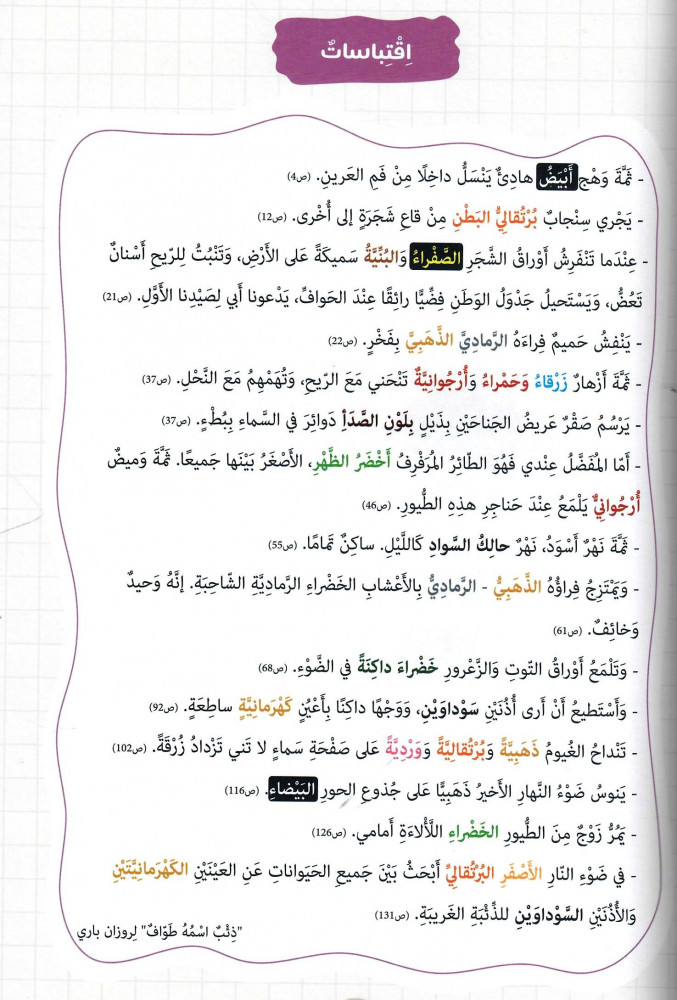 اِقْتِباساتٌ
- ثَمَّةَ وَهْج أَبْيَضُ هادِئٌ يَنْسَلُّ داخِلًا مِنْ فَمِ العَرينِ. (ص4)
- يَجْري سِنْجابٌ بُرْتُقالِيُّ البَطْنِ مِنْ قاعِ شَجَرَةٍ إلى أُخْرى. (ص12)
- عِنْدَما تَنْفَرِشُ أَوْراقُ الشَّجَرِ الصَّفْراءُ وَالبُنِّيَّةُ سَميكَةً عَلى الأَرْضِ، وَتَنْبُتُ لِلرّيحِ أَسْنانٌ
تَعُضُّ، وَيَسْتَحيلُ جَدْوَلُ الوَطَنِ فِضِّيًّا رائِقًا عِنْدَ الحَوافِّ، يَدْعونا أَبي لِصَيْدِنا الأَوَّلِ. (ص21)
- يَنْفِشُ حَميمٌ فِراءَهُ الرَّمادِيَّ الذَّهَبِيَّ بِفَخْرٍ. (ص22)
- ثَمَّةَ أَزْهارٌ زَرْقاءُ وَحَمْراءُ وَأُرْجُوانِيَّةٌ تَنْحَني مَعَ الرّيحِ، وَتُهَمْهِمُ مَعَ النَّحْلِ. (ص37)
- يَرْسُمُ صَقْرٌ عَريضُ الجَناحَيْنِ بِذَيْلٍ بِلَوْنِ الصَّدَأِ دَوائِرَ في السَّماءِ بِبُطْءٍ. (ص37)
- أَمّا المُفَضَّلُ عِنْدي فَهُوَ الطّائِرُ المُرَفْرِفُ أَخْضَرُ الظَّهْرِ، الأَصْغَرُ بَيْنَها جَميعًا. ثَمَّةَ وَميضٌ
أُرْجُوانِيٌّ يَلْمَعُ عِنْدَ حَناجِرِ هذِهِ الطُّيورِ. (ص46)
- ثَمَّةَ نَهْرٌ أَسْوَدُ، نَهْرٌ حالِكُ السَّوادِ كَاللَّيْلِ. ساكِنٌ تَمامًا. (ص55)
- وَيَمْتَزِجُ فِراؤُهُ الذَّهَبِيُّ - الرَّمادِيُّ بِالأَعْشابِ الخَضْراءِ الرَّمادِيَّةِ الشّاحِبَةِ. إِنَّهُ وَحيدٌ
وَخائِفٌ. (ص61)
- وَتَلْمَعُ أَوْراقُ التّوتِ وَالزَّعْرورِ خَضْراءَ داكِنَةً في الضَّوْءِ. (ص68)
- وَأَسْتَطيعُ أَنْ أَرى أُذُنَيْنِ سَوْداوَيْنِ، وَوَجْهًا داكِنًا بِأَعْيُنٍ كَهْرَمانِيَّةٍ ساطِعَةٍ. (ص92)
- تَنْداحُ الغُيومُ ذَهَبِيَّةً وَبُرْتُقالِيَّةً وَوَرْدِيَّةً عَلى صَفْحَةِ سَماءٍ لا تَني تَزْدادُ زُرْقَةً. (ص102)
- يَنوسُ ضَوْءُ النَّهارِ الأَخيرُ ذَهَبِيًّا عَلى جُذوعِ الحورِ البَيْضاءِ. (ص116)
- يَمُرُّ زَوْجٌ مِنَ الطُّيورِ الخَضْراءِ اللَّأْلاءَةِ أَمامي. (ص126)
- في ضَوْءِ النّارِ الأَصْفَرِ البُرْتُقالِيِّ أَبْحَثُ بَيْنَ جَميعِ الحَيَواناتِ عَنِ العَيْنَيْنِ الكَهْرَمانِيَّتَيْنِ
وَالأُذُنَيْنِ السَّوْداوَيْنِ للذِّئْبَةِ الغَريبَةِ. (ص131)
"ذِئْبٌ اسْمُهُ طَوّافٌ" لِروزان باري